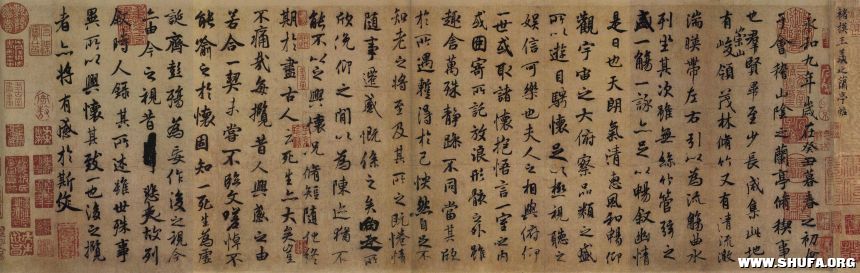 褚模王羲之蘭亭帖
永和九年歲在癸丑暮春之初會
于會稽山陰之蘭亭脩禊事
也群賢畢至少長咸集此地
有崇山峻領茂林脩竹又有清流激
湍暎帶左右引以為流觴曲水
列坐其次雖無絲竹管弦之
盛一觴一詠亦足以暢敘幽情
是日也天朗氣清惠風和暢仰
觀宇宙之大俯察品類之盛
所以遊目騁懷足以極視聽之
娛信可樂也夫人之相與俯仰
一世或取諸懷抱悟言一室之內
或因寄所託放浪形骸之外雖
趣舍萬殊靜躁不同當其欣
於所遇暫得於己怏然自足不
知老之將至及其所之既惓情
隨事遷感慨係之矣向之所
欣俛仰之間以為陳迹猶不
能不以之興懷況脩短隨化終
期於盡古人云死生亦大矣豈
不痛哉每攬昔人興感之由
若合一契未嘗不臨文嗟悼不
能喻之於懷固知一死生為虛
誕齊彭殤為妄作後之視今
亦由今之視昔悲夫故列
敘時人錄其所述雖世殊事
異所以興懷其致一也後之攬
者亦將有感於斯文
WWW.SHUFA.ORG